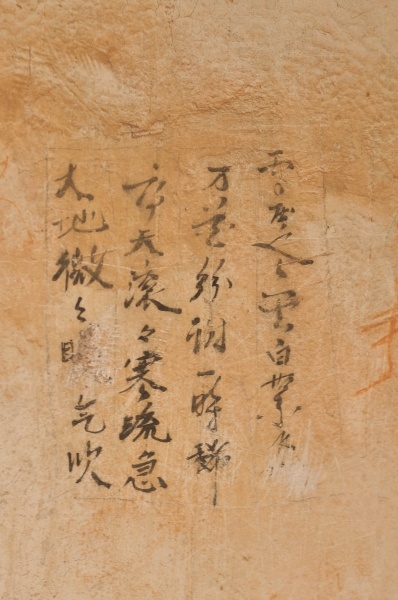 雪压冬云白絮飞
万花纷谢一時稀
高天滚々寒流急
大地微々 气吹